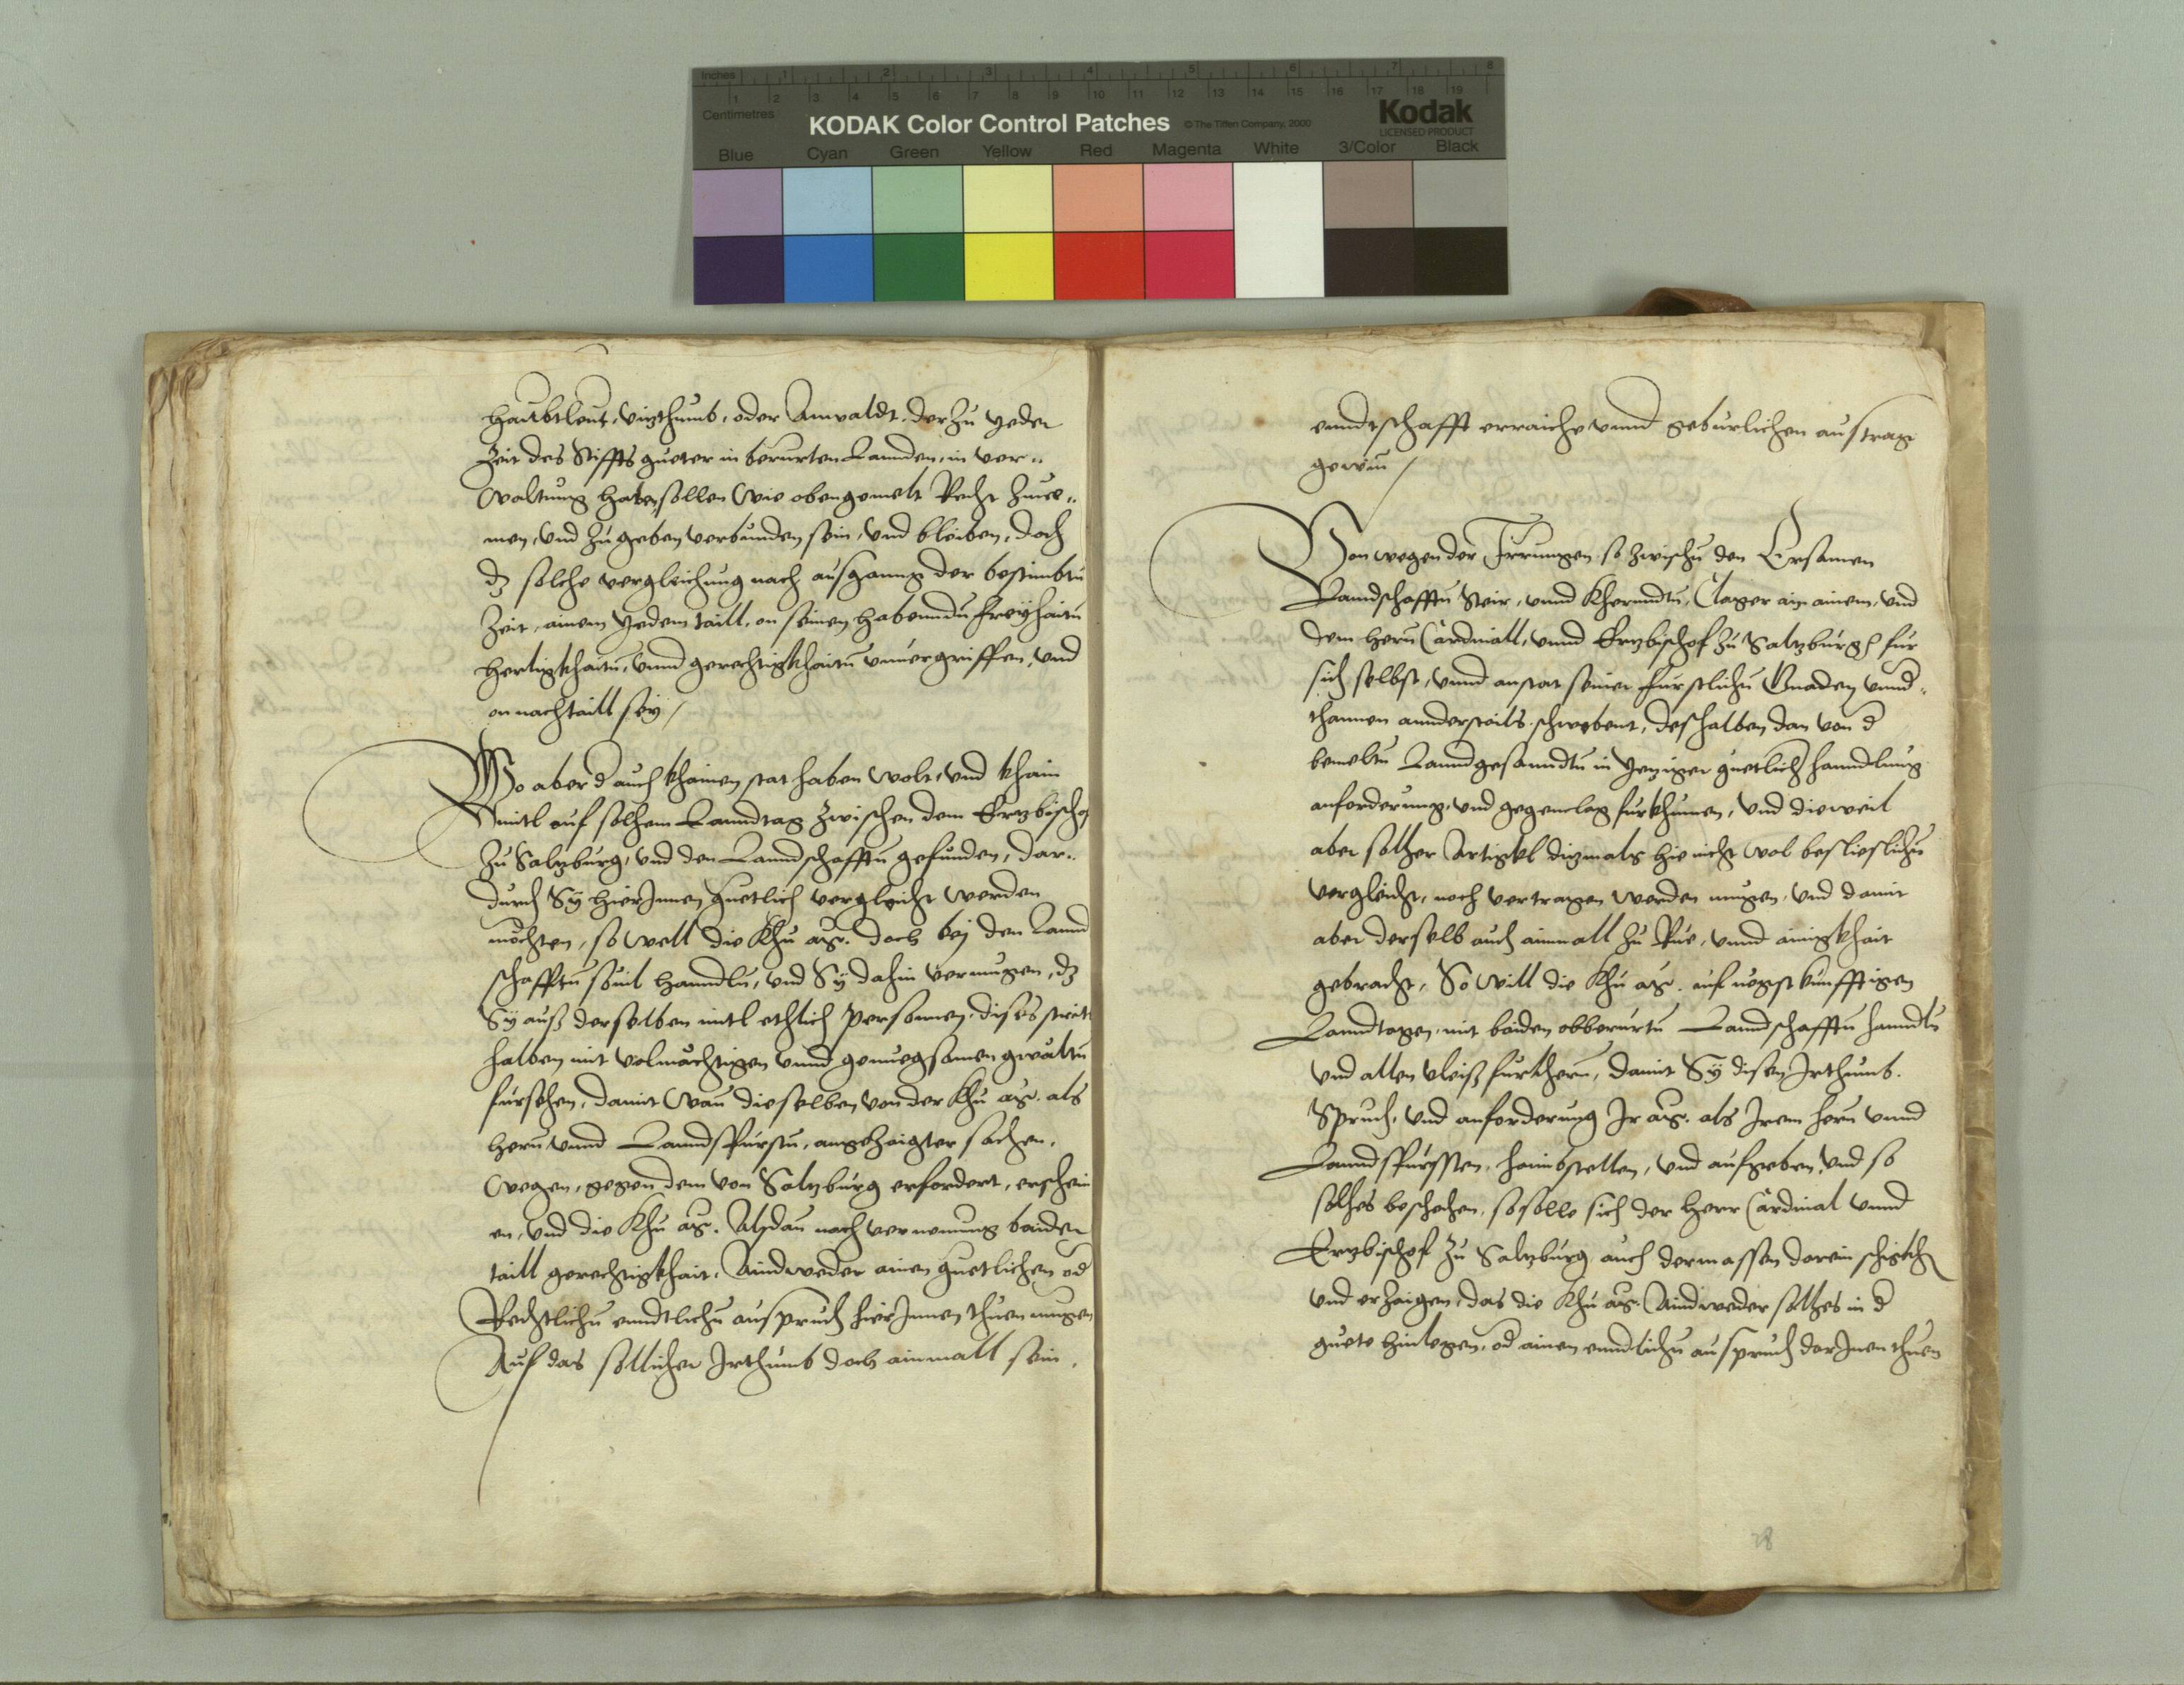 Inches 1 2 3 4 5 6 7 8
Centimetres 1 2 3 4 5 6 7 8 9 10 11 12 13 14 15 16 17 18 19
KODAK Color Control Patches © The Tiffen Company, 2000 Kodak
LICENSED PRODUCT
Blue Cyan Green Yellow Red Magenta White 3/Color Black
haubtleut, vizthumb, oder Anwaldt, der zu yeder
Zeit des Stiffts gueter in berurten Lannden, in ver„
waltung haben, sollen wie obengemelt Recht zune„
men, vnd zugeben verbunden sein, vnd bleiben, doch
dz solche vergleichung nach ausganng der bestimbtn
Zeit, ainem yedem taill, on seinen habenndn freyhaitn
herligkhaitn, vnnd gerechtigkhaitn vnuergriffen, vnd
on nachtaill sey /
Wo aber d auch khainen stat haben wolt, vnd khain
mitl auf solhem Lanndtag zwischen dem Ertzbischof
zu Salzburg, vnd den Lanndschafftn gefunden, dar„
durch Sy hierInnen guetlich vergleicht werden
möchten, so well die Khu. doch bej den Lannd
schafftn souil hanndln, vnd Sy dahin vermugen, dz
Sy auß derselben mitl ethlich personnen, dises streit
halben mit volmächtigen vnnd genuegsamen gwaltn
fürsehen, damit wan dieselben von der Khu. als
herrn vnnd Lanndsfürstn, angezaigter sachen,
wegen, gegen dem von Salzburg erfordert, erschein
en, vnd die Khu. Alsdan nach vernemung baider
taill gerechtigkhait, Aindweder ainen guetlichen od
Rechtlichn enndtlichn auspruch hierInnen thuen mugen
Auf das sollicher Irthumb doch ainmall sein,
enndtschafft erraiche vnnd geburlichen austrag
gewin /
Von wegen der Irrungen so zwischn den Ersamen
Landschafftn Steir, vnnd Kherndtn, Clager an ainem, vnd
dem herrn Cardinall, vnnd Ertzbischof zu Salzburg fur
sich selbst, vnnd anstat seiner fürstlichn Gnaden vnnd„
thannen annderstails schwebent, deshalben dan von d
bemeltn Lanndgesanndtn in yeziger guetlich hanndlung
anforderung, vnd gegenclag fürkhumen, vnd dieweil
aber solher Artigkl dizmals hie nicht wol beslieslichn
vergleicht, noch vertragen werden mugen, vnd damit
aber derselb auch ainmall zu Rue, vnnd ainigkhait
gebracht, So will die Khu. auf negst kunfftigen
Lanndtagen, mit baiden obberurtn Lanndschafftn hanndln
vnd allen vleiß furkhern, damit Sy disen Irthumb.
Spruch, vnd anforderung Ir. als Irem herrn vnnd
Lanndsfürssten, haimbstellen, vnd aufgeben, vnd so
solhes beschehen, so solle sich der Herr Cardinal vnnd
Ertzbischof zu Salzburg auch dermassen darein schigkhen
vnd erzaigen, das die Khu. Aindweder solhes in d
guete hinlegen, od ainen enndlichn auspruch darInnen thuen
28